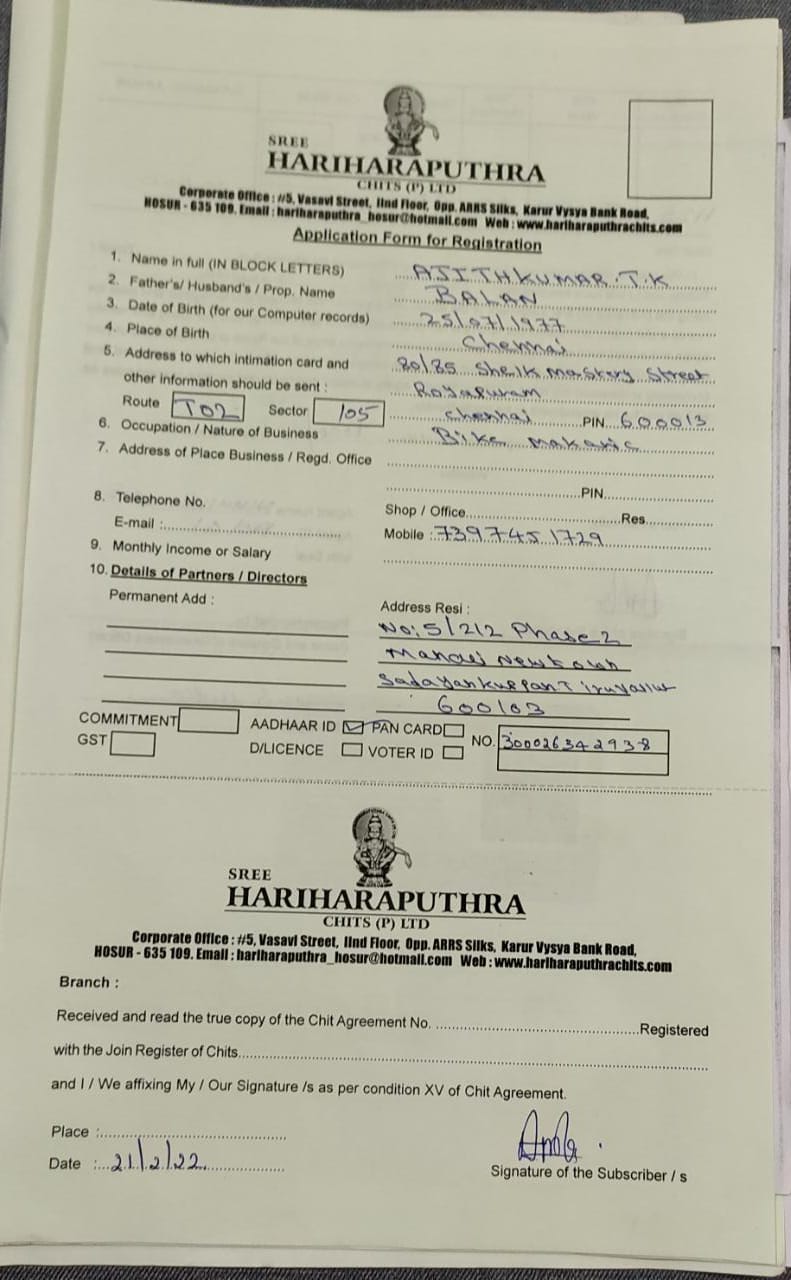 SREE
HARIHARAPUTHRA
CHITS (P) LTD
Corporate Office : #5, Vasavi Street, IInd Floor, Opp. ARRS Silks, Karur Vysya Bank Road,
HOSUR - 635 109. Email : hariharaputhra_hosur@hotmail.com Web : www.hariharaputhrachits.com
Application Form for Registration
1. Name in full (IN BLOCK LETTERS) AJITHKUMAR.T.K
2. Father's/ Husband's / Prop. Name BALAN
3. Date of Birth (for our Computer records) 25/07/1977
4. Place of Birth Chennai
5. Address to which intimation card and 20/85 Sheik Mastery Street
other information should be sent : Royapuram
Route T02 Sector 105 Chennai PIN 600013
6. Occupation / Nature of Business Bike Makanic
7. Address of Place Business / Regd. Office
PIN
8. Telephone No. Shop / Office Res
E-mail : Mobile : 7397451729
9. Monthly Income or Salary
10. Details of Partners / Directors
Permanent Add : Address Resi :
No: 5/212 Phase 2
Manali Newtown
Sadayankuppan Tiruvallur
600103
COMMITMENT AADHAAR ID PAN CARD
GST D/LICENCE VOTER ID NO. 300026342938
SREE
HARIHARAPUTHRA
CHITS (P) LTD
Corporate Office : #5, Vasavi Street, IInd Floor, Opp. ARRS Silks, Karur Vysya Bank Road,
HOSUR - 635 109. Email : hariharaputhra_hosur@hotmail.com Web : www.hariharaputhrachits.com
Branch :
Received and read the true copy of the Chit Agreement No. Registered
with the Join Register of Chits
and I / We affixing My / Our Signature /s as per condition XV of Chit Agreement.
Place :
Date : 21/2/22
Signature of the Subscriber / s